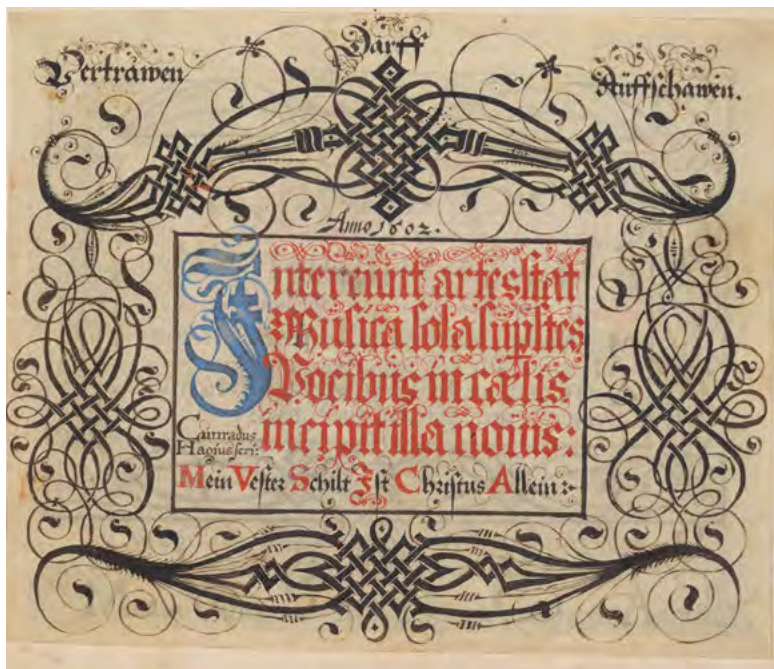 Vertrawen
Darff
Auffschawen.
Anno 1602.
Intereunt artes stat
Musica sola supstes
Vocibus in cœlis
incipit illa nouis:
Cunradus
Hagius scri:
Mein Vester Schilt Ist Christus Allein: